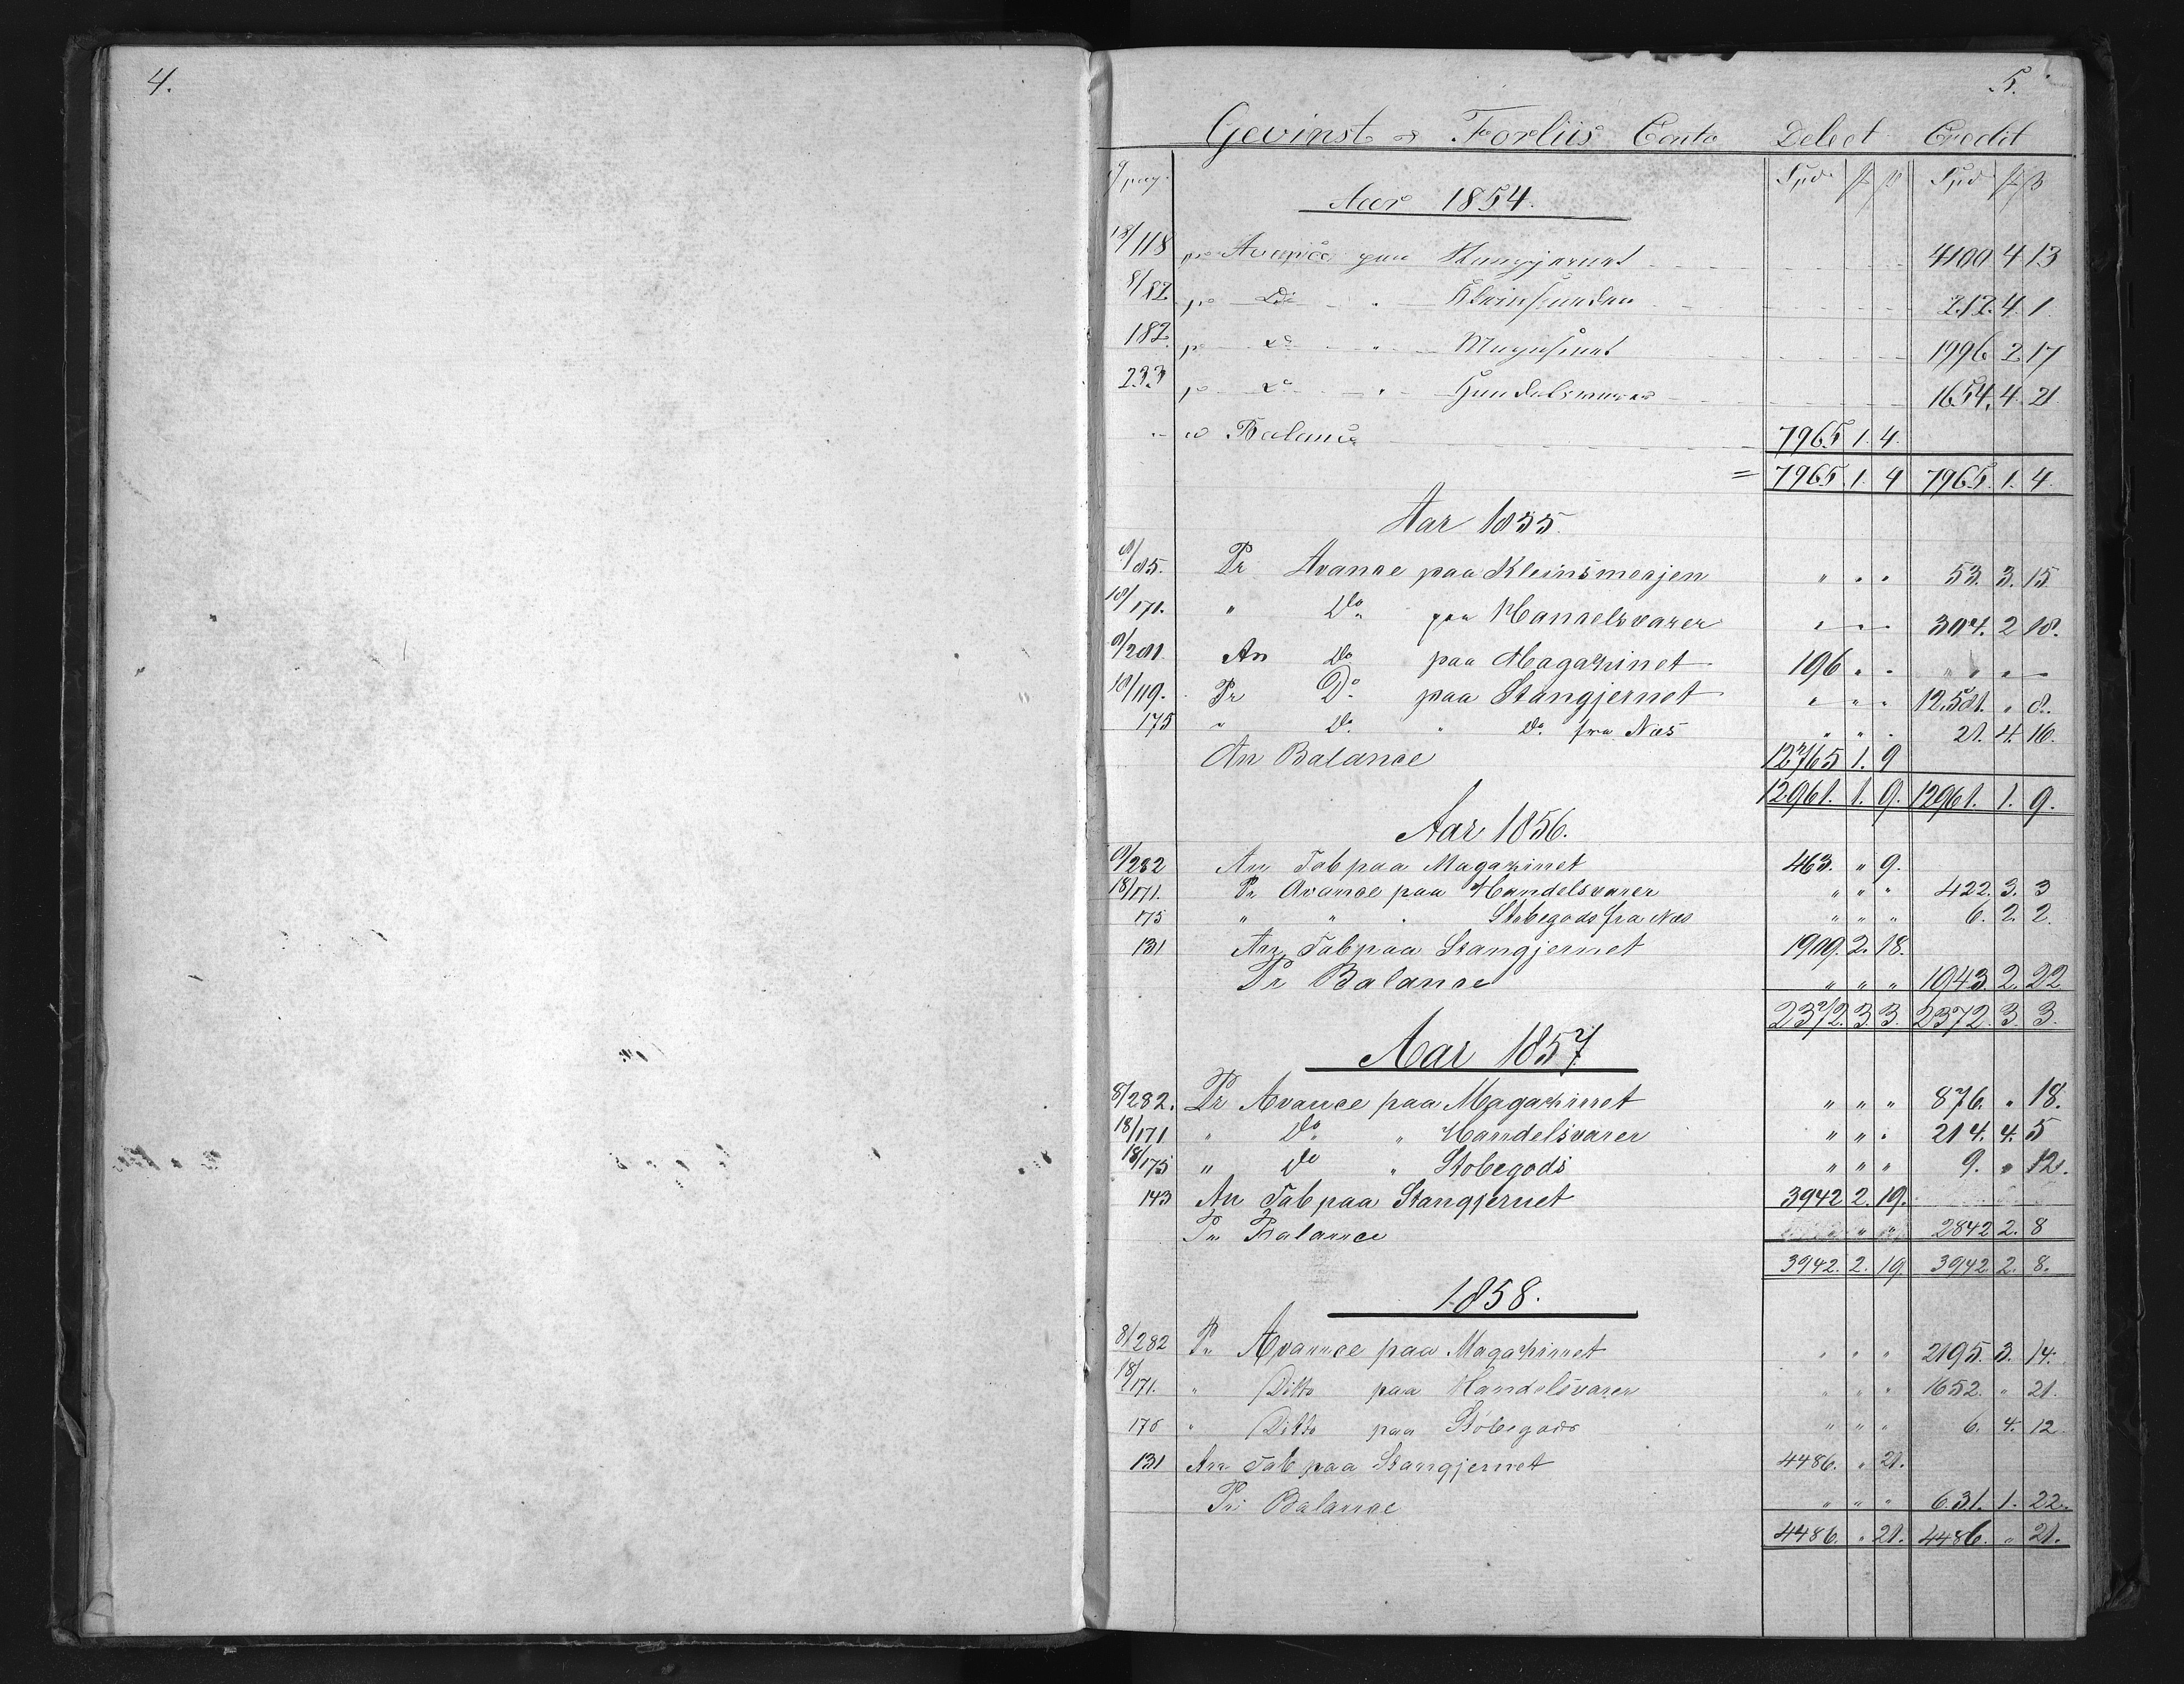 4.
5.
Gevinst & Forliis Conto Debet Credit
pag. Spd. Spd.
Aar 1854.
18/118 pr Avance paa Stangjernet 4100 4 13
8/82 pr Do " Kleinsmeden 212. 4. 1
182. pr Do " Magasinet 1996 2 17
233 pr Do " Handelsvarer 1654. 4. 21
Balance 7965 1. 4.
= 7965. 1. 4 7965. 1. 4
Aar 1855.
8/85. Pr Avance paa Kleinsmedjen " " " 53. 3. 15
18/171. " Do paa Handelsvarer " " " 304. 2 18.
8/281 An Do paa Magazinet 196 " " " " "
18/119. Pr Do paa Stangjernet " " " 12,581. " 8.
175 " Do " Do fra Næs " " " 21. 4. 16.
An Balance 12765 1. 9
12961. 1. 9. 12961. 1. 9.
Aar 1856.
8/282 An Tab paa Magazinet 463. " 9.
18/171. Pr Avance paa Handelsvarer " " " 422. 3. 3
175 " " " Støbegods fra Næs " " " 6. 2. 2.
131 An Tab paa Stangjernet 1909. 2. 18.
Pr Balance " " " 1943. 2. 22
2372. 3. 3. 2372. 3. 3.
Aar 1857.
8/282. Pr Avance paa Magazinet " " " 876. " 18.
18/171 " Do " Handelsvarer " " " 214. 4. 5
18/175 " Do " Støbegods " " " 9. " 12.
143 An Tab paa Stangjernet 3942 2. 19.
Pr Balance " " 2842 2. 8
3942. 2. 19. 3942. 2. 8.
1858.
8/282 Pr Avance paa Magazinet " " " 2195. 3. 14.
18/171. " Ditto paa Handelsvarer " " " 1652. " 21.
175 " Ditto paa Støbegods " " " 6. 4. 12.
131 An Tab paa Stangjernet 4486. " 21.
Pr Balance " " " 631. 1. 22.
4486. " 21. 4486. " 21.